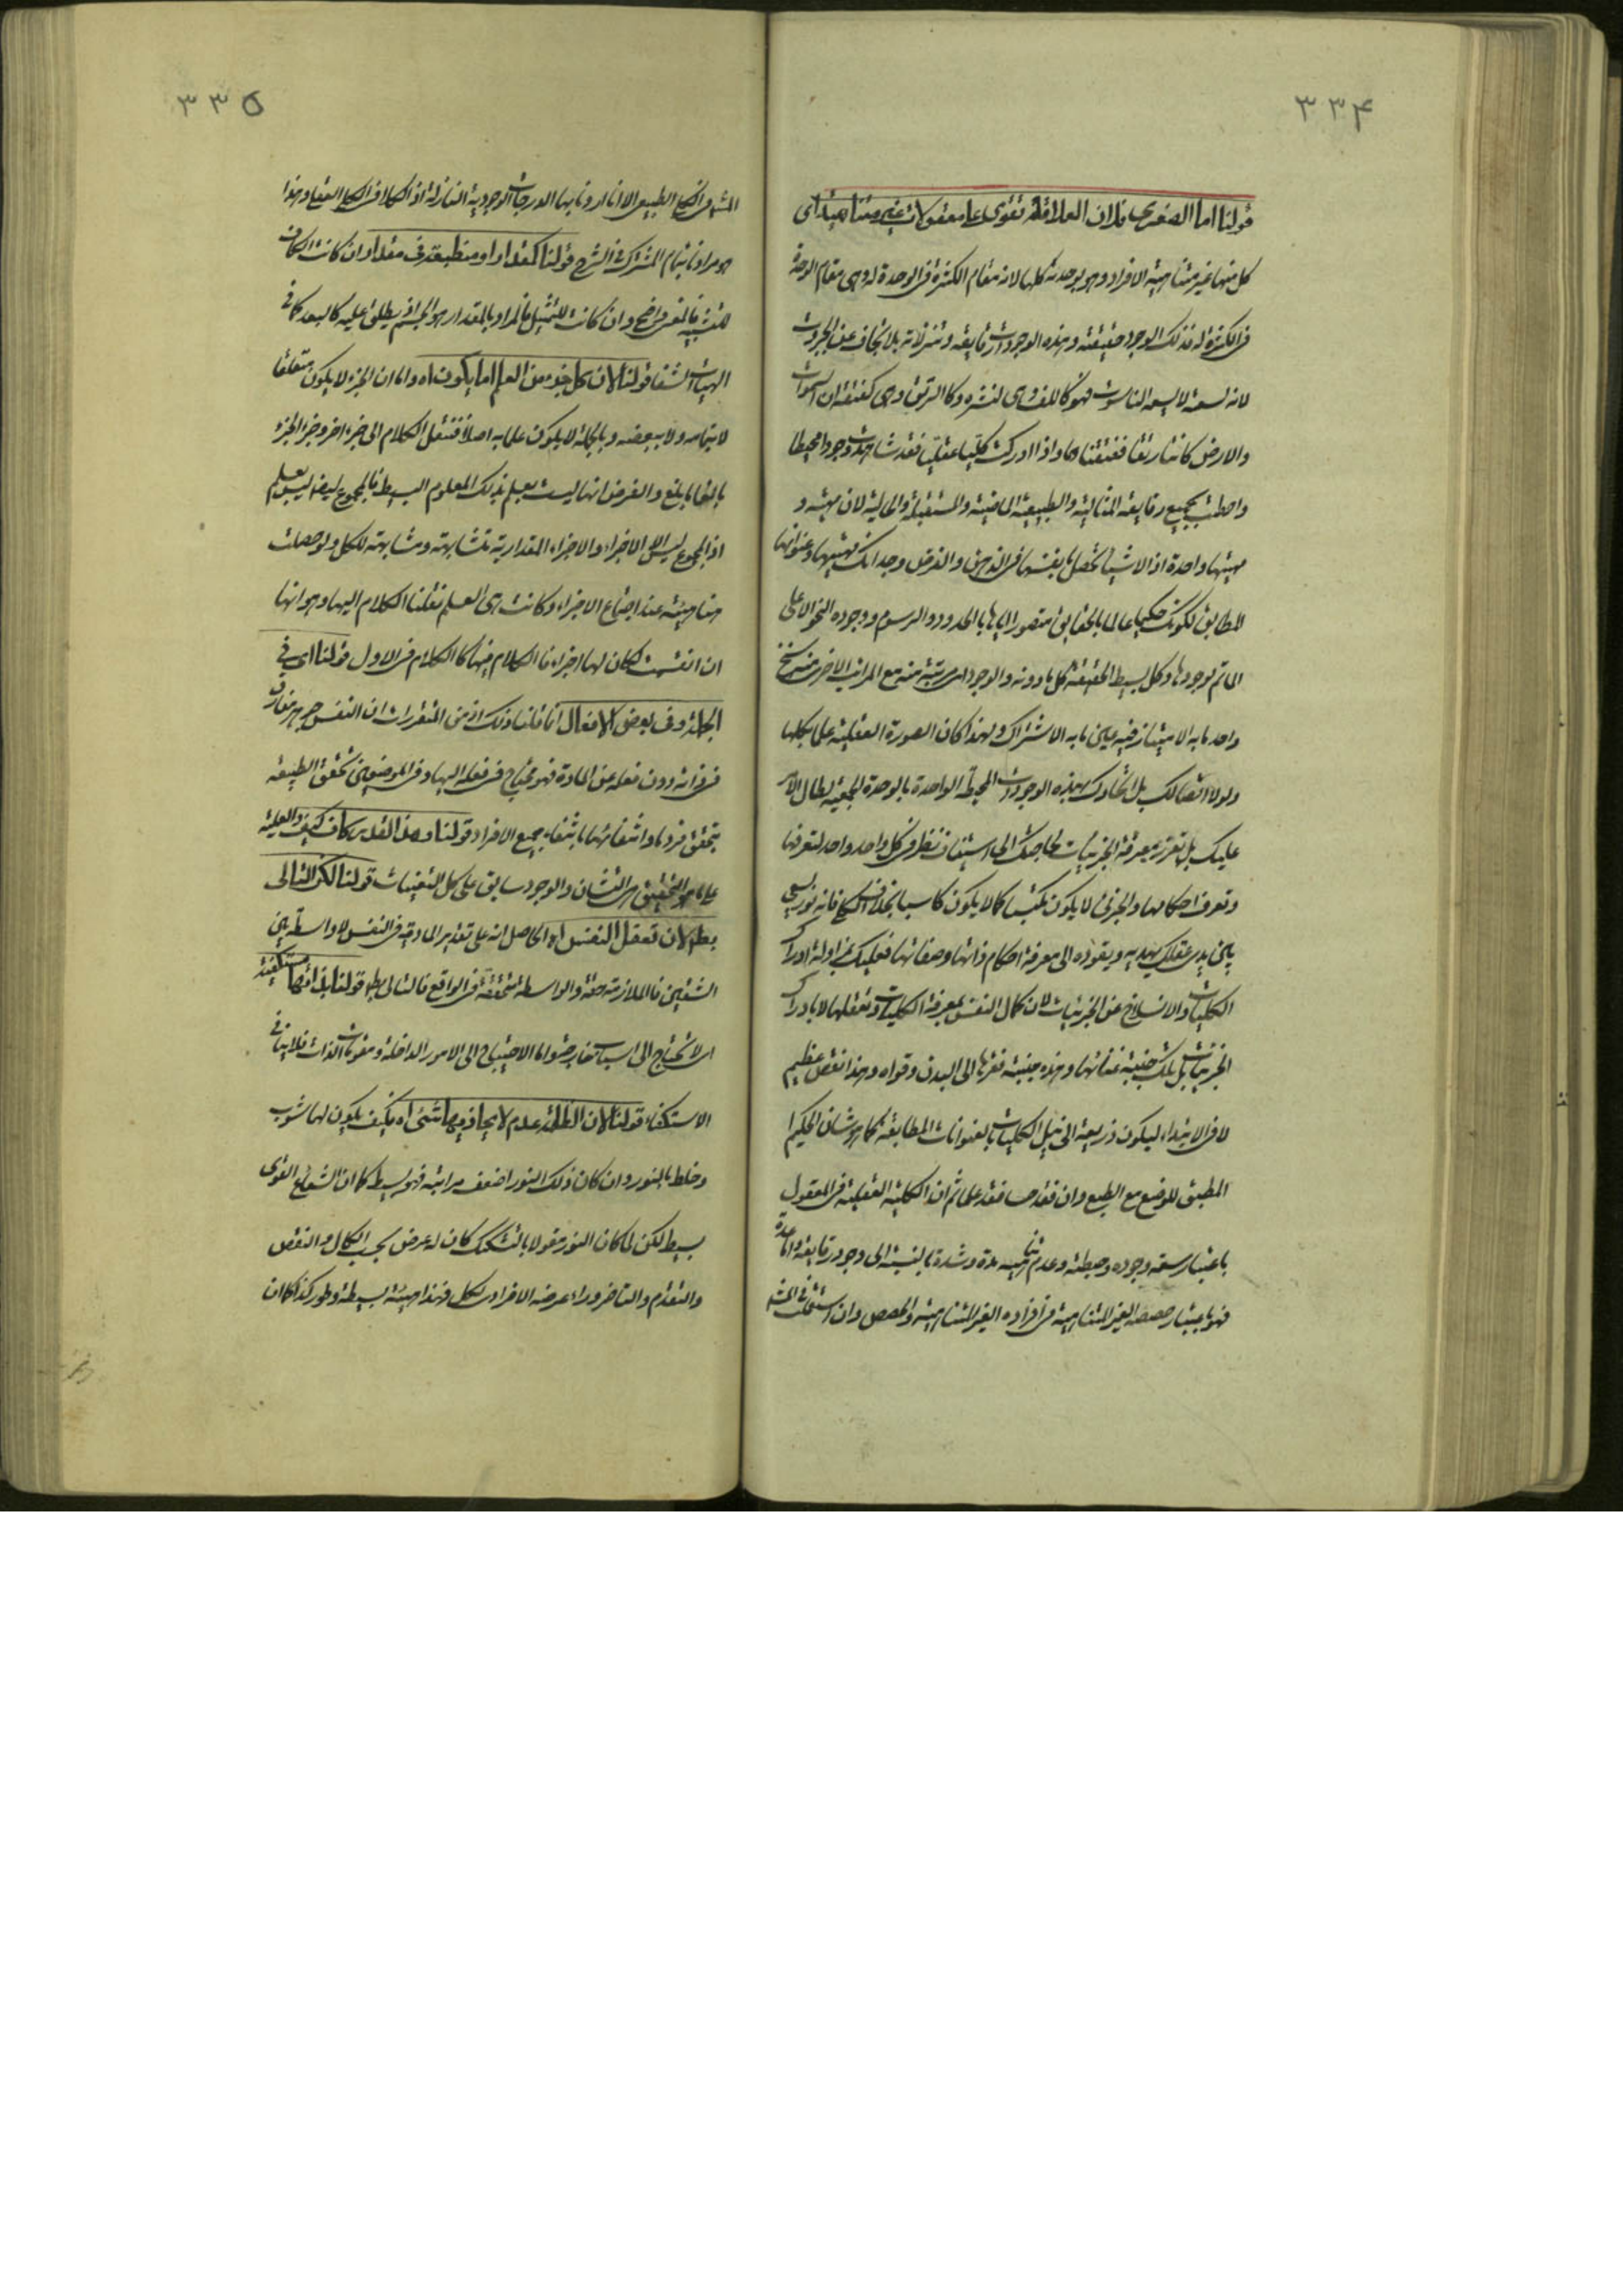 ۳۳۴
قولنا اما الصغرى فلان العاقلة تقوى على معقولات غير متناهية اى
كل منها غير متناهية الافراد وهو بوحدته كلها لانه مقام الكثرة فى الوحدة له وهى مقام الوحدة
فى الكثرة له فذلك الوجود حقيقته وهذه الوجودات رقايقه وتنزلاته بلا تجاف عن الجبروت
لانه لسعته لا يسعه الناسوت فهو كاللف وهى نشره وكالرتق وهى كفتقه ان السموات
والارض كانتا رتقا ففتقناهما واذا ادركت كليا عقليا فقد شاهدت وجودا محيطا
واحطت بجميع رقايقه المثالية والطبيعية الماضية والمستقبلة والحالية لان مهيته و
مهيتها واحدة اذ الاشياء تحصل بانفسها فى الذهن والفرض وجدانك مهيتها وعنوانها
المطابق لكونك حكيما عالما بالحقايق متصورا اياها بالحدود والرسوم ووجوده النحو الاعلى
الماتم لوجودها وكل بسيط الحقيقة كل ما دونه والوجود اى مرتبة منه مع المراتب الاخرى منه سنخ
واحد ما به الامتياز فيه عين ما به الاشتراك ولهذا كان الصورة العقلية علما بكلها
ولولا اتصالك بل اتحادك بهذه الوجودات المحيطة الواحدة بالوحدة الجمعية لطال الامر
عليك بل تعزز بمعرفة الجزئيات لحاجتك الى استيناف نظر فى كل واحد واحد لتعرفها
وتعرف احكامها والجزئى لا يكون مكتسبا كما لا يكون كاسبا بخلاف الكلى فانه نور يسعى
بين يدى عقلك يهديه ويقوده الى معرفة احكام ذاتها وصفاتها فعليك بمزاولة ادراك
الكليات والانسلاخ عن الجزئيات لان كمال النفس بمعرفة الكليات وتعقلها لا بادراك
الجزئيات بل تلك جنبة غنائها وهذه جنبة فقرها الى البدن وقواه وهذا نقص عظيم
لا فى الابتداء ليكون ذريعة الى نيل الكليات بالعنوانات المطابقة كما هو شان الحكيم
المطبق للوضع مع الطبع وان فقد حسا فقد علما ثم ان الكلية العقلية فى المعقول
باعتبار سعة وجوده وحيطته وعدم تناهيه مدة وشدة بالنسبة الى وجود رقايقه واما عدة
فهو باعتبار حصصه الغير المتناهية فى افراده الغير المتناهية والحصص وان استعملت فى المشهور
۳۳۵
المشهور فى الكلى الطبيعى الا انا اردنا بها الدرجات الوجودية النازلة اذ الكلام فى الكلى العقلى وهذا
هو مرادنا بتمام المشترك فى الشرح قولنا كمقدار او منطبعة فى مقدار ان كانت الكاف
للتشبيه فالمقدار واضح وان كانت للتمثيل فالمراد بالمقدار هو الجسم اذ يطلق عليه كالبعد كما فى
الهيات الشفا قولنا لان كل جزء من العلم اما يكون اه واما ان الجزء لا يكون متعلقا
لا بتمامه ولا ببعضه وبالجملة لا يكون علما به اصلا فننقل الكلام الى جزء اخر وجزء الجزء
بالغا ما بلغ والفرض انها ليست بعلم بذلك المعلوم البسيط فالمجموع ايضا ليس بعلم
اذ المجموع ليس الا الاجزاء والاجزاء المقدارية متشابهة ومشابهة للكل ولو حصلت
هناك هيئة عند اجتماع الاجزاء وكانت هى العلم نقلنا الكلام اليها وهو انها
ان انقسمت لكان لها اجزاء فالكلام فيها كالكلام فى الاول قولنا اى فى
الجملة وفى بعض الافعال انما قلنا ذلك اذ من المقررات ان النفس جوهر مفارق
فى ذاته دون فعله عن المادة فهو محتاج فى فعله اليها وفى الموضوعين تحقق الطبيعة
بتحقق فرد ما وانتفائها بانتفاء جميع الافراد قولنا وهذا القدر كاف كيف والعلية
على ما هو التحقيق هى التشان والوجود سابق على كل التعينات قولنا لكن التالى
بطلان تعقل النفس اه الحاصل انه على تقدير المادية فى النفس لا واسطة بين
الشقين فالملازمة حقة والواسطة متحققة فى الواقع فالتالى باطل قولنا بذاتها مستكفية
اى لا تحتاج الى اسباب خارجية واما الاحتياج الى الامور الداخلة ومقومات الذات فلا ينافى
الاستكفاء قولنا لان الظلمة عدم لا يحاذيها شئ اه فكيف يكون لها شوب
وخلط بالنور وان كان ذلك النور اضعف مراتبه فهو بسيط كما ان الشعاع القوى
بسيط لكن لما كان النور مقولا بالتشكيك كان له عرض بحسب الكمال والنقص
والتقدم والتاخر وراء عرضه الافرادى لكل فهذا هيئة بسيطة وطور كذا كما ان